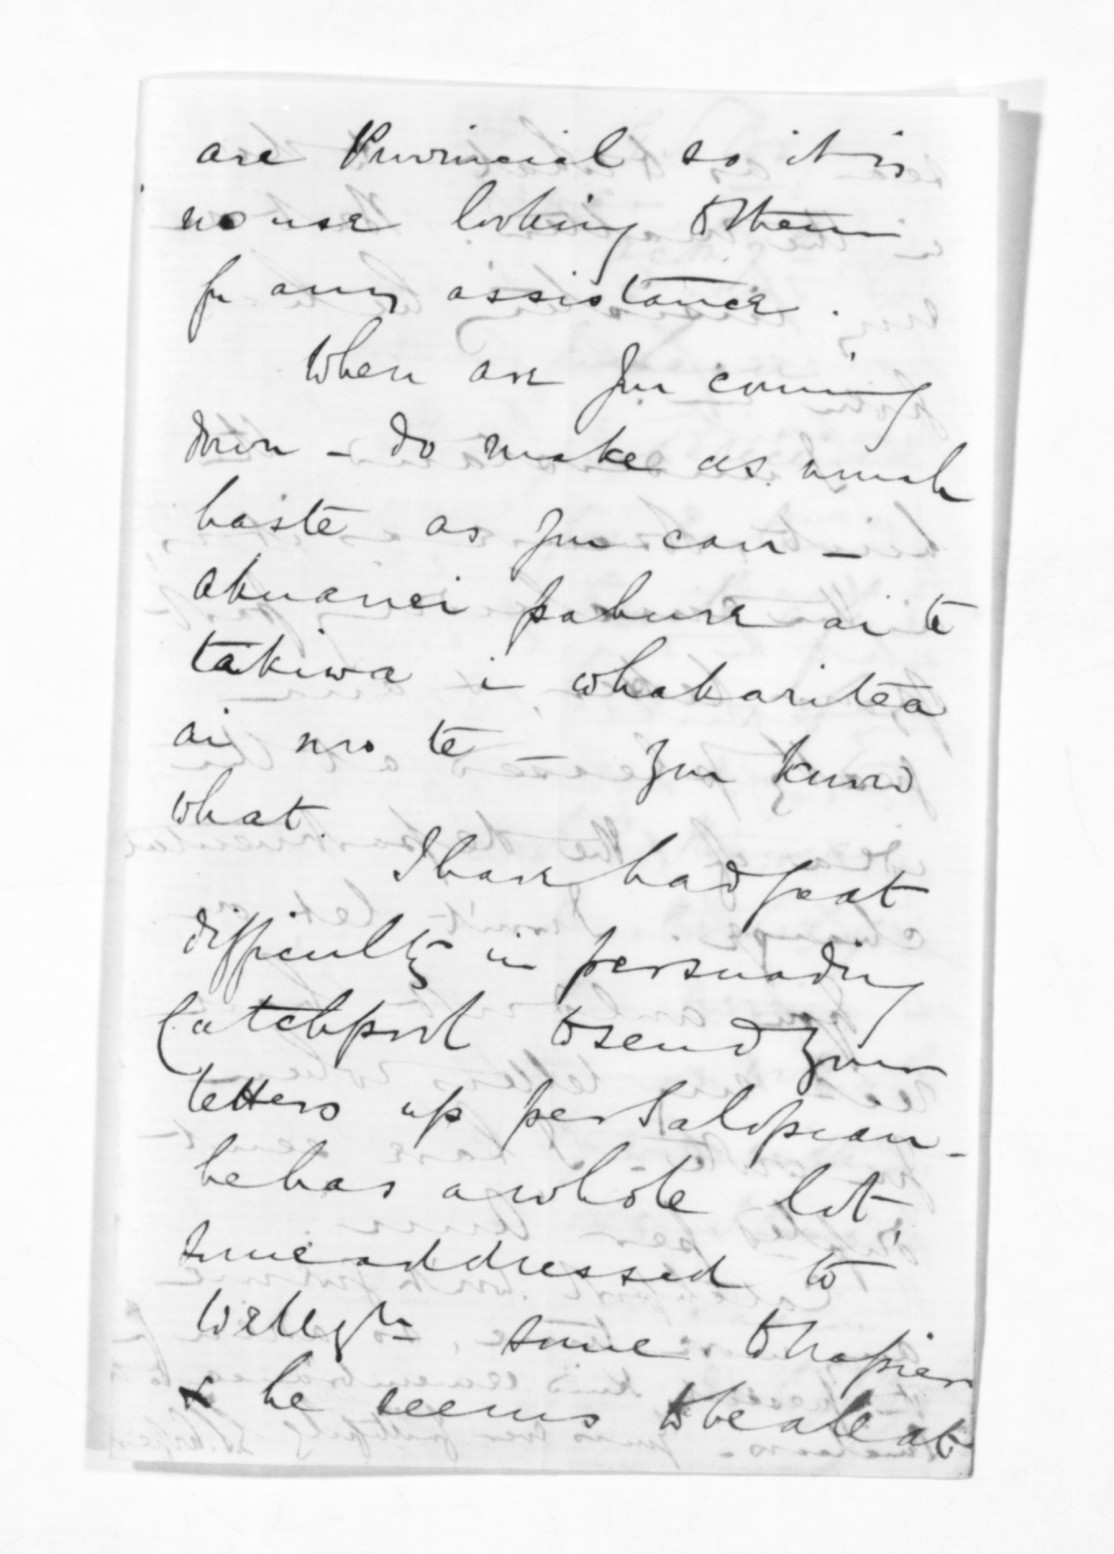 are Provincial so it is
no use looking to them
for any assistance.
When are you coming
down - do make as much
haste as you can -
akuanei pahure ai te
takiwa i whakaritea
ai mo te - you know
what.
I have had great
difficulty in persuading
Catchpool to send your
letters up per Salopian -
he has a whole lot,
some addressed to
Wellgtn some to Napier
& he seems to be all at